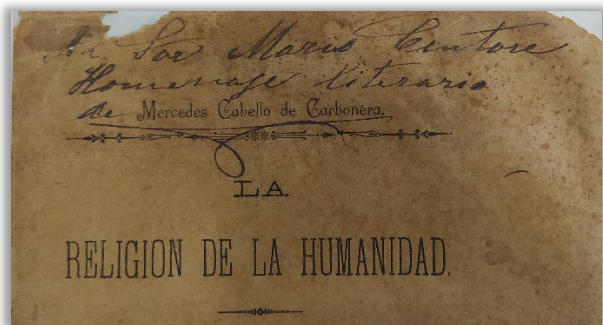 Al Sor Mario Centore
Homenaje literario
de Mercedes Cabello de Carbonera.
LA
RELIGION DE LA HUMANIDAD.